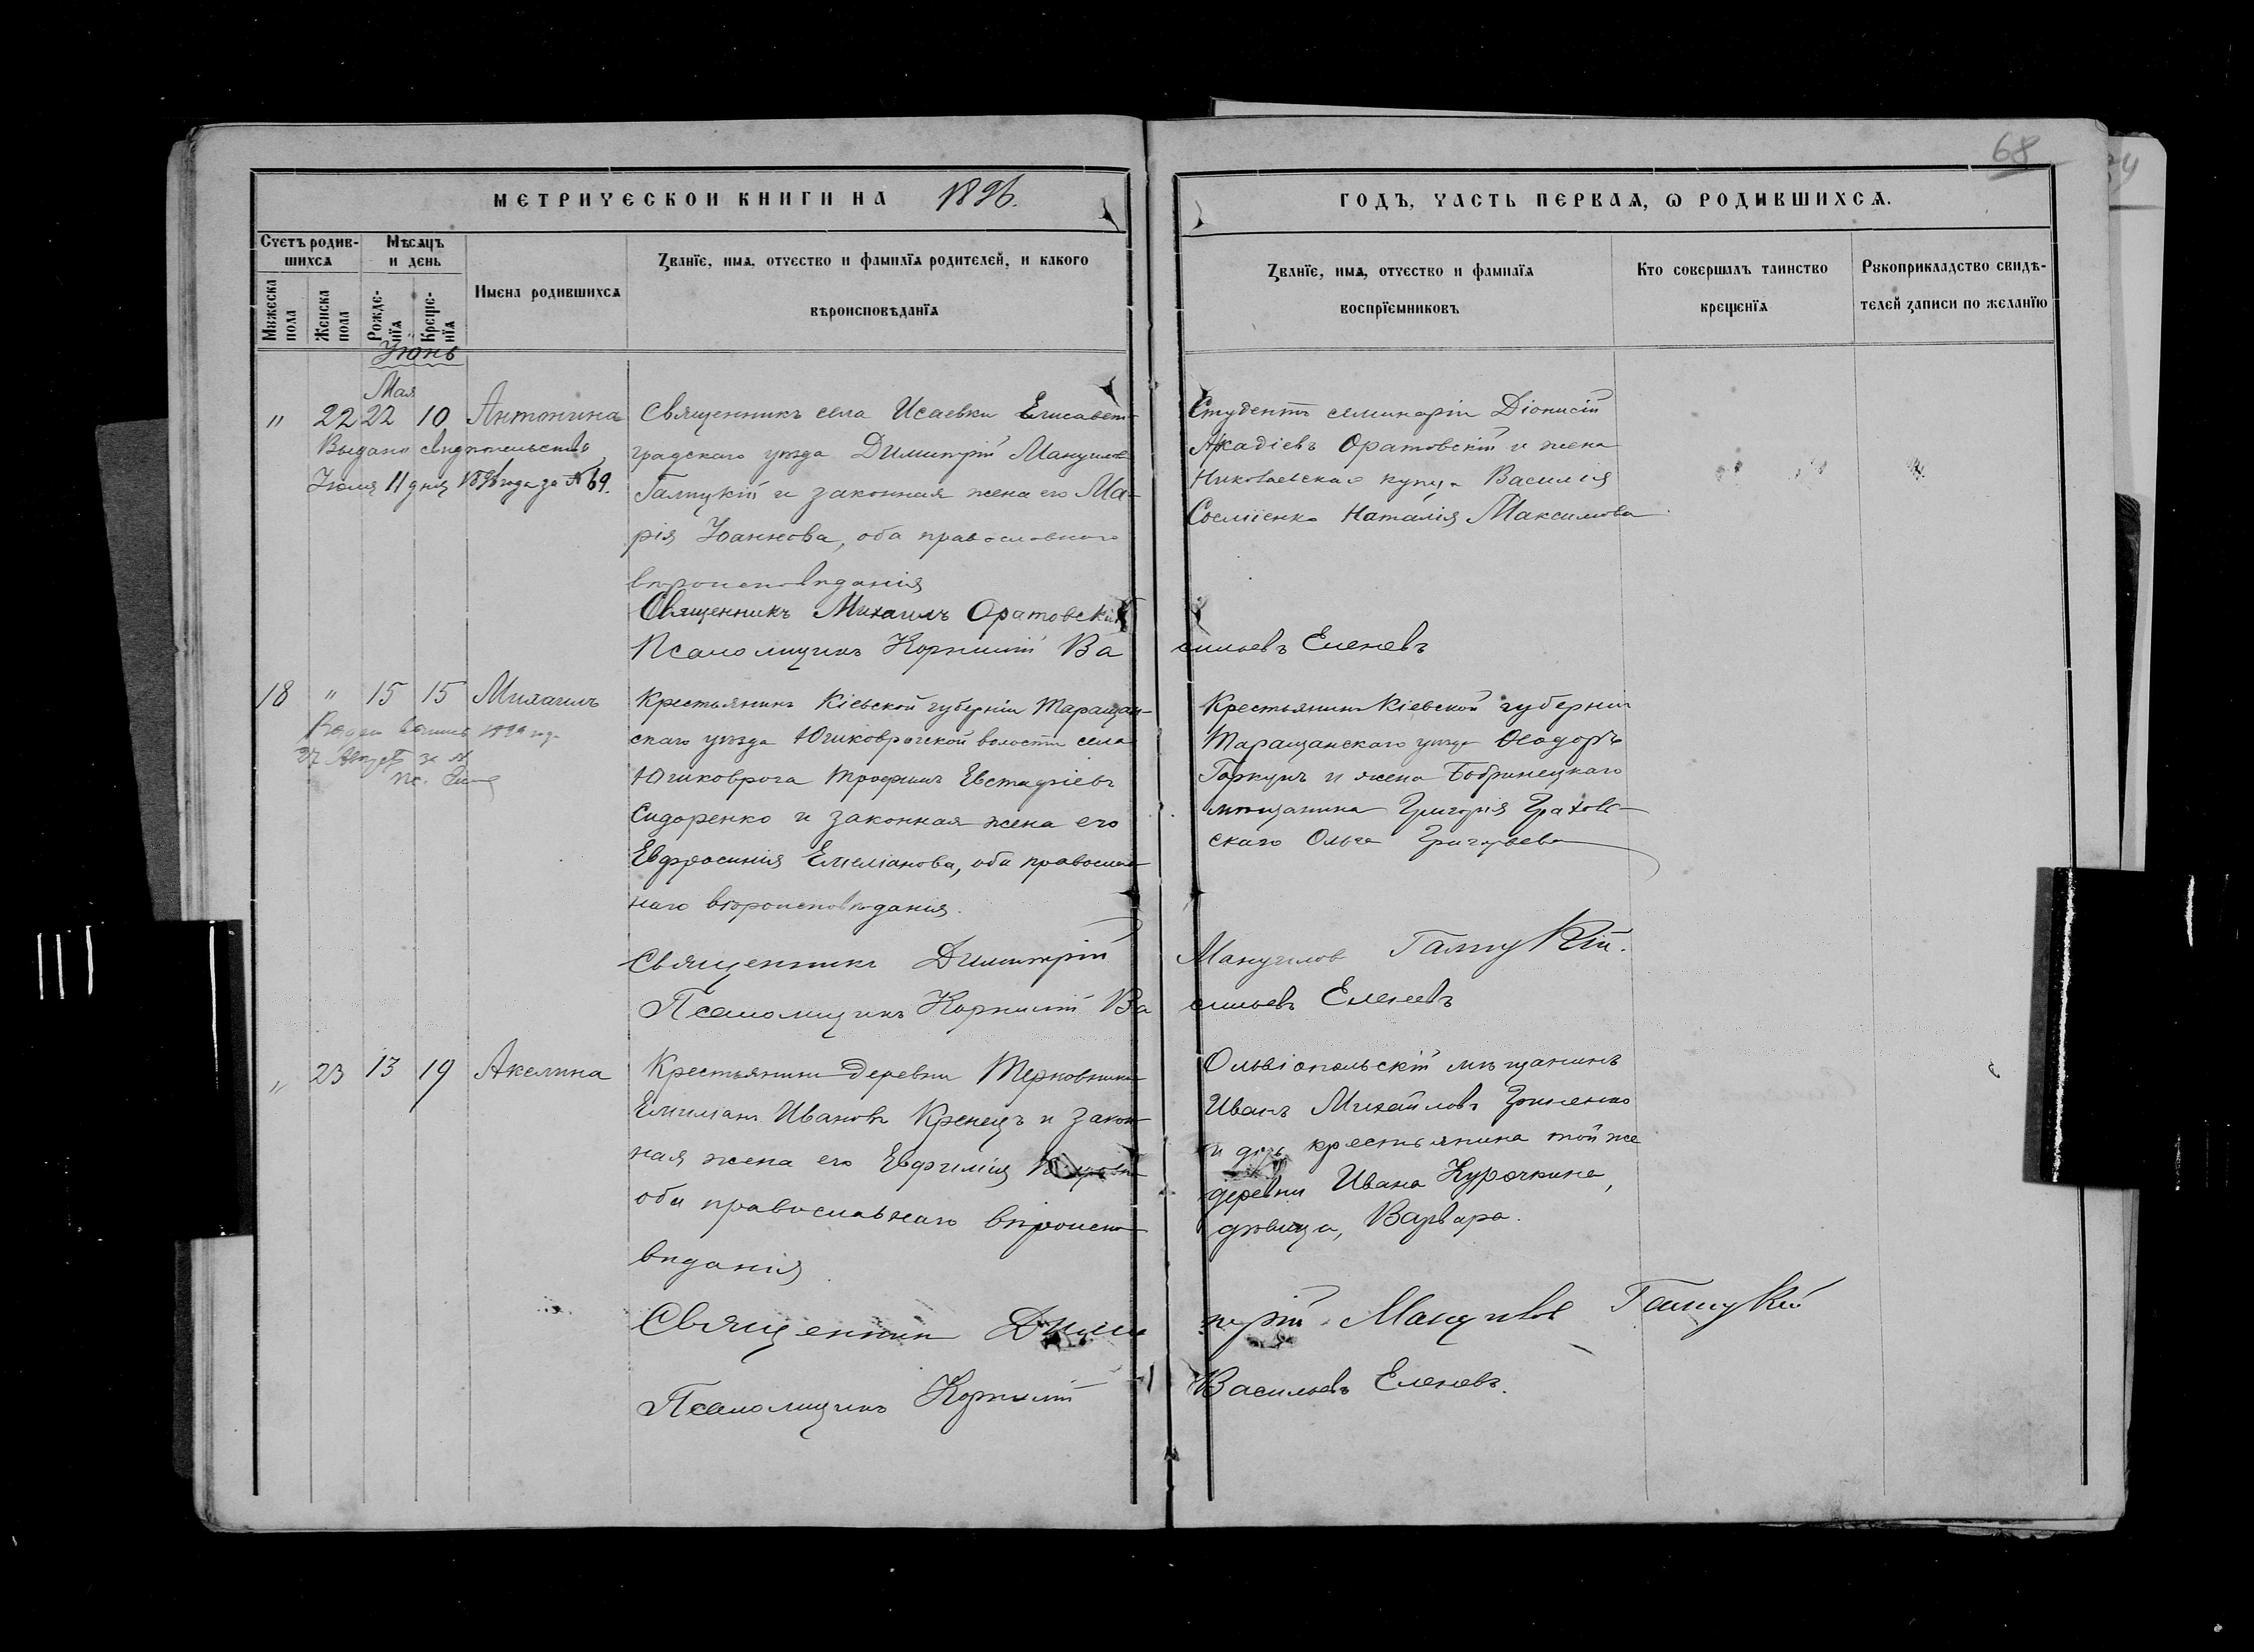 68
МЕТРИЧЕСКОЙ КНИГИ НА 1896.
ГОДЪ, ЧАСТЬ ПЕРВАЯ, Ѡ РОДИВШИХСЯ.
Счетъ родив-
шихся
Мѣсяцъ
и день
Мужеска
пола
Женска
пола
Рожде-
нїя
Креще-
нїя
Имена родившихся
Званїе, имя, отчество и фамилїя родителей, и какого
вѣроисповѣданїя
Званїе, имя, отчество и фамилїя
воспрїемниковъ
Кто совершалъ таинство
крещенїя
Рукоприкладство свидѣ-
телей записи по желанїю
Іюнь
Мая
" 22 22 10 Антонина
Выдано свидѣтельство
Іюля 11 дня 1896 года за № 69.
Священникъ села Исаевки Елисавет-
градскаго уѣзда Димитрій Мануилов
Галицкій и законная жена его Ма-
рія Іоаннова, оба православнаго
вѣроисповѣданія
Студентъ семинаріи Діонисій
Аркадіевъ Оратовскій и жена
Николаевскаго купца Василія
Наталія Максимова
Священникъ Михаилъ Оратовскій
Псаломщикъ Корнилій Ва
сильевъ Еленевъ
18 " 15 15 Михаилъ
27 Август за №
Крестьянинъ Кіевской губерніи Таращан-
скаго уѣзда волости села
Трофимъ Евстафіевъ
Сидоренко и законная жена его
Евфросинія Емеліанова, оба православ-
наго вѣроисповѣданія.
Крестьянинъ Кіевской губерніи
Таращанскаго уѣзда Ѳеодоръ
и жена Бобринецкаго
мѣщанина Григорія Грахов-
скаго Ольга Григорьева
Священникъ Димитрій
Мануилов Галицкій.
Псаломщикъ Корнилій Ва
сильевъ Еленевъ
" 23 13 19 Акелина
Крестьянинъ деревни Терновки
Емиліанъ Ивановъ Кренецъ и закон-
ная жена его Евфимія
оба православнаго вѣроиспо-
вѣданія
Ольвіопольскій мѣщанинъ
Иванъ Михайловъ
и дочь крестьянина той же
деревни Ивана Курочкина,
дѣвица, Варвара.
Священникъ Дими
трій Мануилов Галицкій
Псаломщикъ Корнилій
Васильевъ Еленевъ.